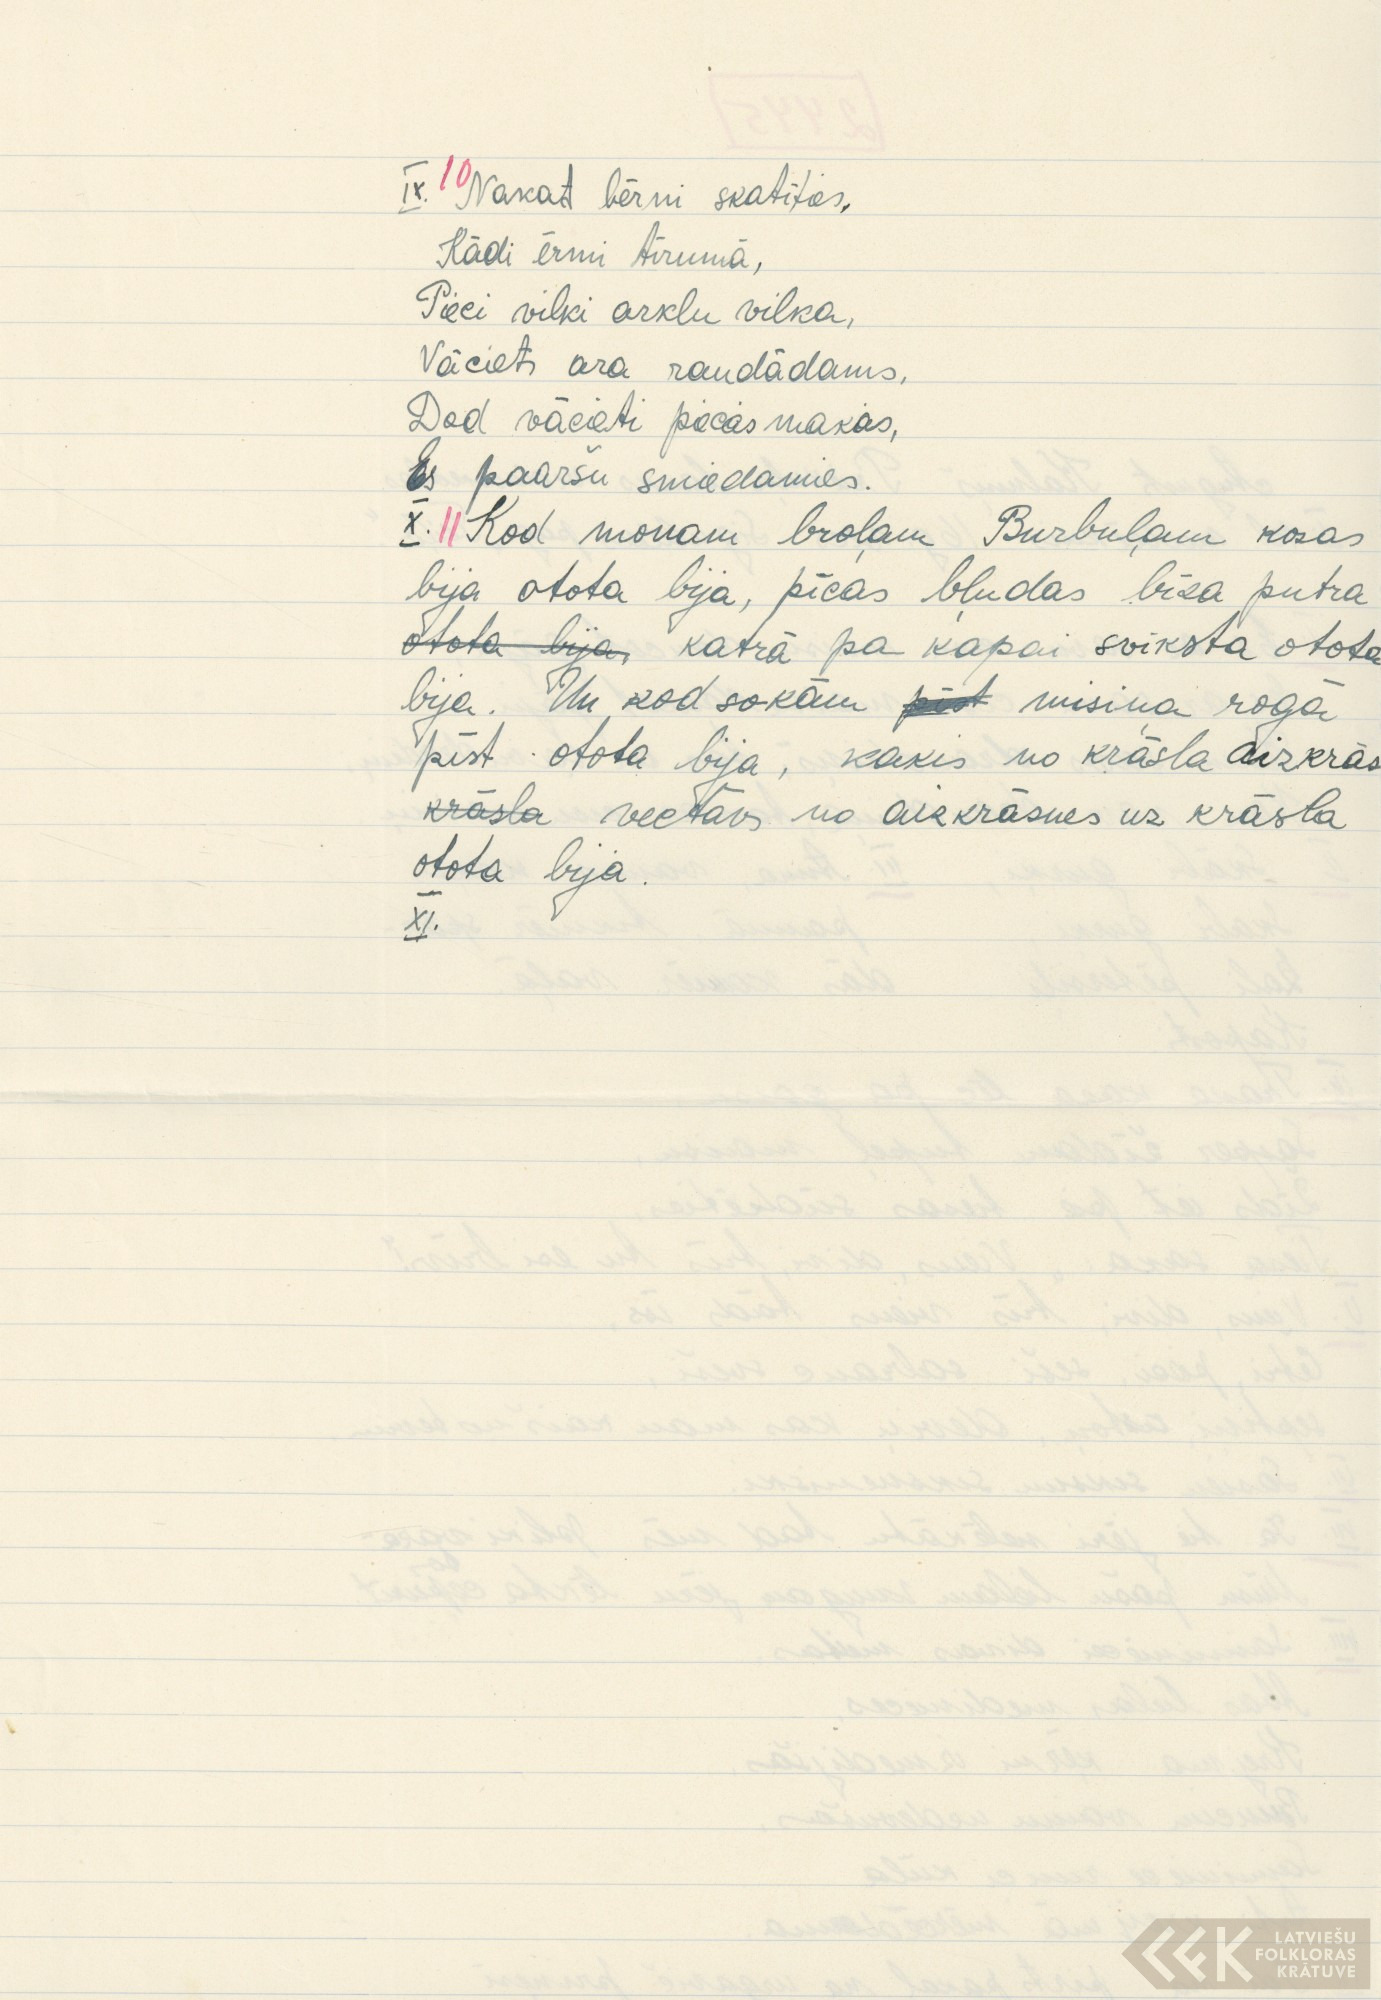 IX. 10 Nakat bērni skatīties,
Kādi ērmi tīrumā,
Pieci vilki arklu vilka,
Vāciets ara raudādams,
Dod vācieti piecas makas,
Es paaršu smiedamies.
X. 11 Kod monam broļam Burbuļam kozas
bija otota bija, pīcas bļudas bīza putra
otota bija, katrā pa kapai svīksta otota
bija. Un kod sokām pīst misiņa rogā
pīst otota bija, kakis no krāsla aizkrās
krāsla vectāvs no aizkrāsnes uz krāsla
otota bija.
XI.
LATVIEŠU
FOLKLORAS
KRĀTUVE